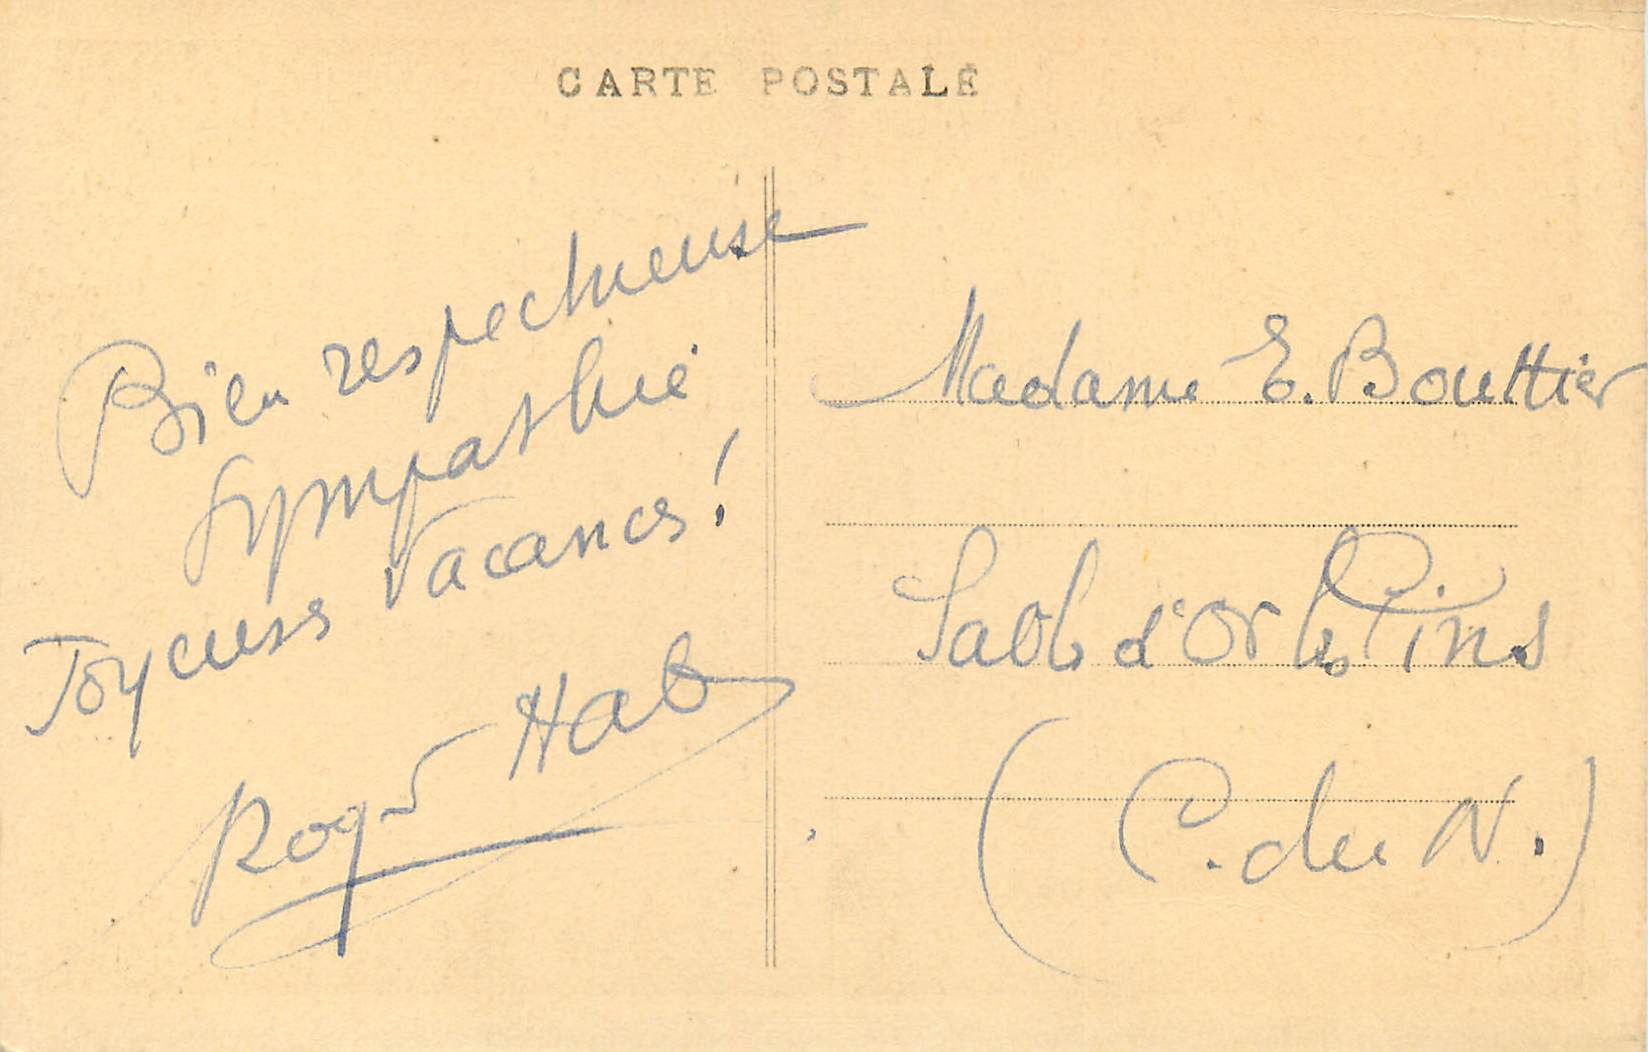 CARTE POSTALE
Bien respectueuse
sympathie
Joyeuses Vacances !
Roger Hab
Madame E. Bouttier
Sable d'Or les Pins
(C. du N.)